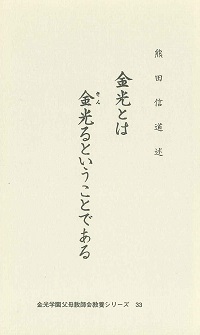 熊田信道述
金光とは
きん
金光るということである
金光学園父母教師会教養シリーズ 33